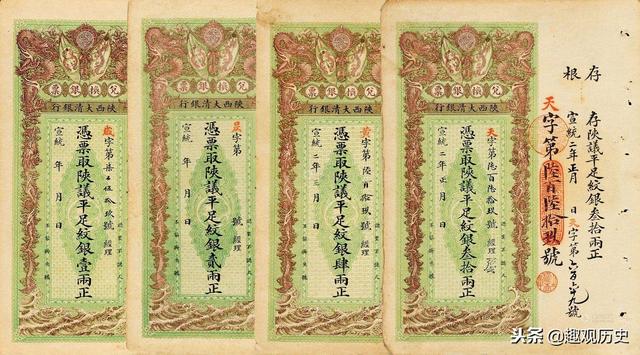 兌換銀票
陝西大清銀行
憑票取陝議平足紋銀壹兩正
宣統 年 月 日
兌換銀票
陝西大清銀行
字第 號 經理
憑票取陝議平足紋銀貳兩正
宣統 年 月 日
兌換銀票
陝西大清銀行
黃字第陸百拾玖號 經理
憑票取陝議平足紋銀肆兩正
宣統二年三月 日
兌換銀票
陝西大清銀行
天字第陸百陸拾玖號 經理
憑票取陝議平足紋銀叁拾兩正
宣統二年正月 日
存根
存陝議平足紋銀叁拾兩正
宣統二年正月 日 天字第六百六十九號
天字第陸百陸拾玖號
头条 @趣观历史